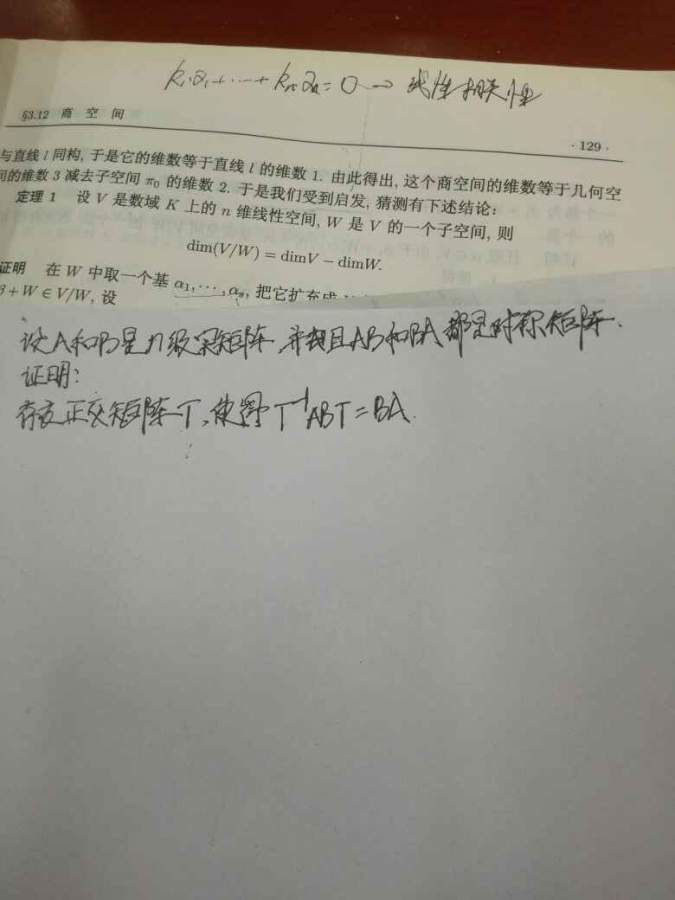 k₁α₁+⋯+kₙαₙ=0→线性相关性
§3.12 商空间
·129·
与直线 l 同构, 于是它的维数等于直线 l 的维数 1. 由此得出, 这个商空间的维数等于几何空
间的维数 3 减去子空间 π₀ 的维数 2. 于是我们受到启发, 猜测有下述结论:
定理 1 设 V 是数域 K 上的 n 维线性空间, W 是 V 的一个子空间, 则
dim(V/W) = dimV − dimW.
证明 在 W 中取一个基 α₁,⋯,αₛ, 把它扩充成
β+W∈V/W, 设
设A和B是n级实矩阵,并且AB和BA都是对称矩阵.
证明:
存在正交矩阵T,使得T⁻¹ABT=BA.